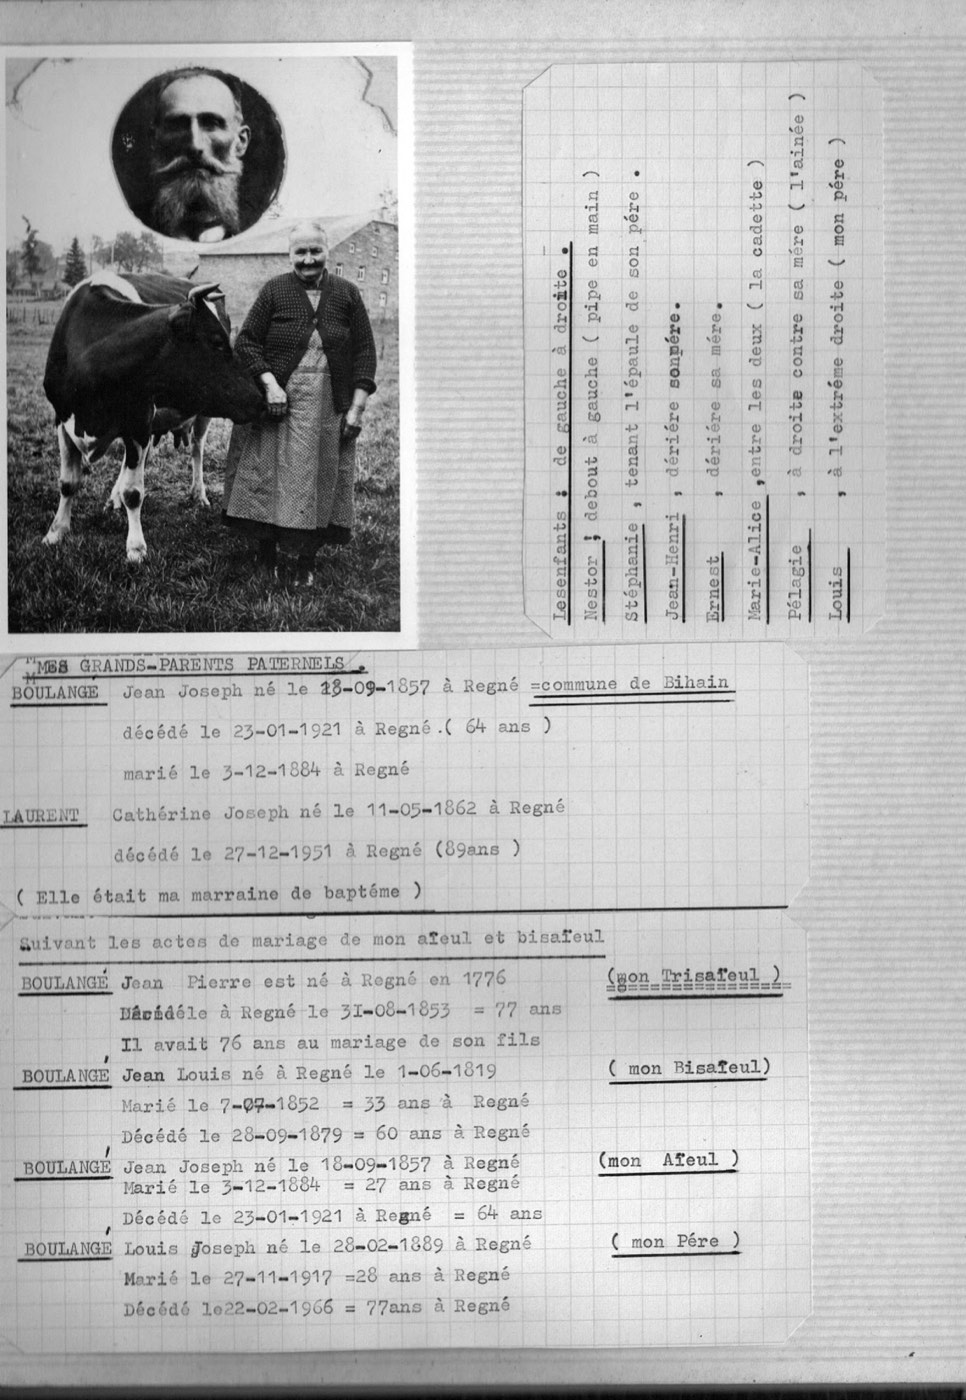 Lesenfants : de gauche à droite .
Nestor ; debout à gauche ( pipe en main )
Stéphanie , tenant l'épaule de son pére .
Jean-Henri , dériére sonpére.
Ernest , dériére sa mére.
Marie-Alice ,entre les deux ( la cadette )
Pélagie , à droite contre sa mére ( l'ainée )
Louis , à l'extréme droite ( mon pére )
MES GRANDS-PARENTS PATERNELS .
BOULANGÉ Jean Joseph né le 18-09-1857 à Regné =commune de Bihain
décédé le 23-01-1921 à Regné .( 64 ans )
marié le 3-12-1884 à Regné
LAURENT Cathérine Joseph né le 11-05-1862 à Regné
décédé le 27-12-1951 à Regné (89ans )
( Elle était ma marraine de baptéme )
Suivant les actes de mariage de mon aïeul et bisaïeul
BOULANGÉ Jean Pierre est né à Regné en 1776 (mon Trisaïeul )
à Regné le 31-08-1853 = 77 ans
Il avait 76 ans au mariage de son fils
BOULANGÉ Jean Louis né à Regné le 1-06-1819 ( mon Bisaïeul)
Marié le 7-07-1852 = 33 ans à Regné
Décédé le 28-09-1879 = 60 ans à Regné
BOULANGÉ Jean Joseph né le 18-09-1857 à Regné (mon Aïeul )
Marié le 3-12-1884 = 27 ans à Regné
Décédé le 23-01-1921 à Regné = 64 ans
BOULANGÉ Louis Joseph né le 28-02-1889 à Regné ( mon Pére )
Marié le 27-11-1917 =28 ans à Regné
Décédé le22-02-1966 = 77ans à Regné